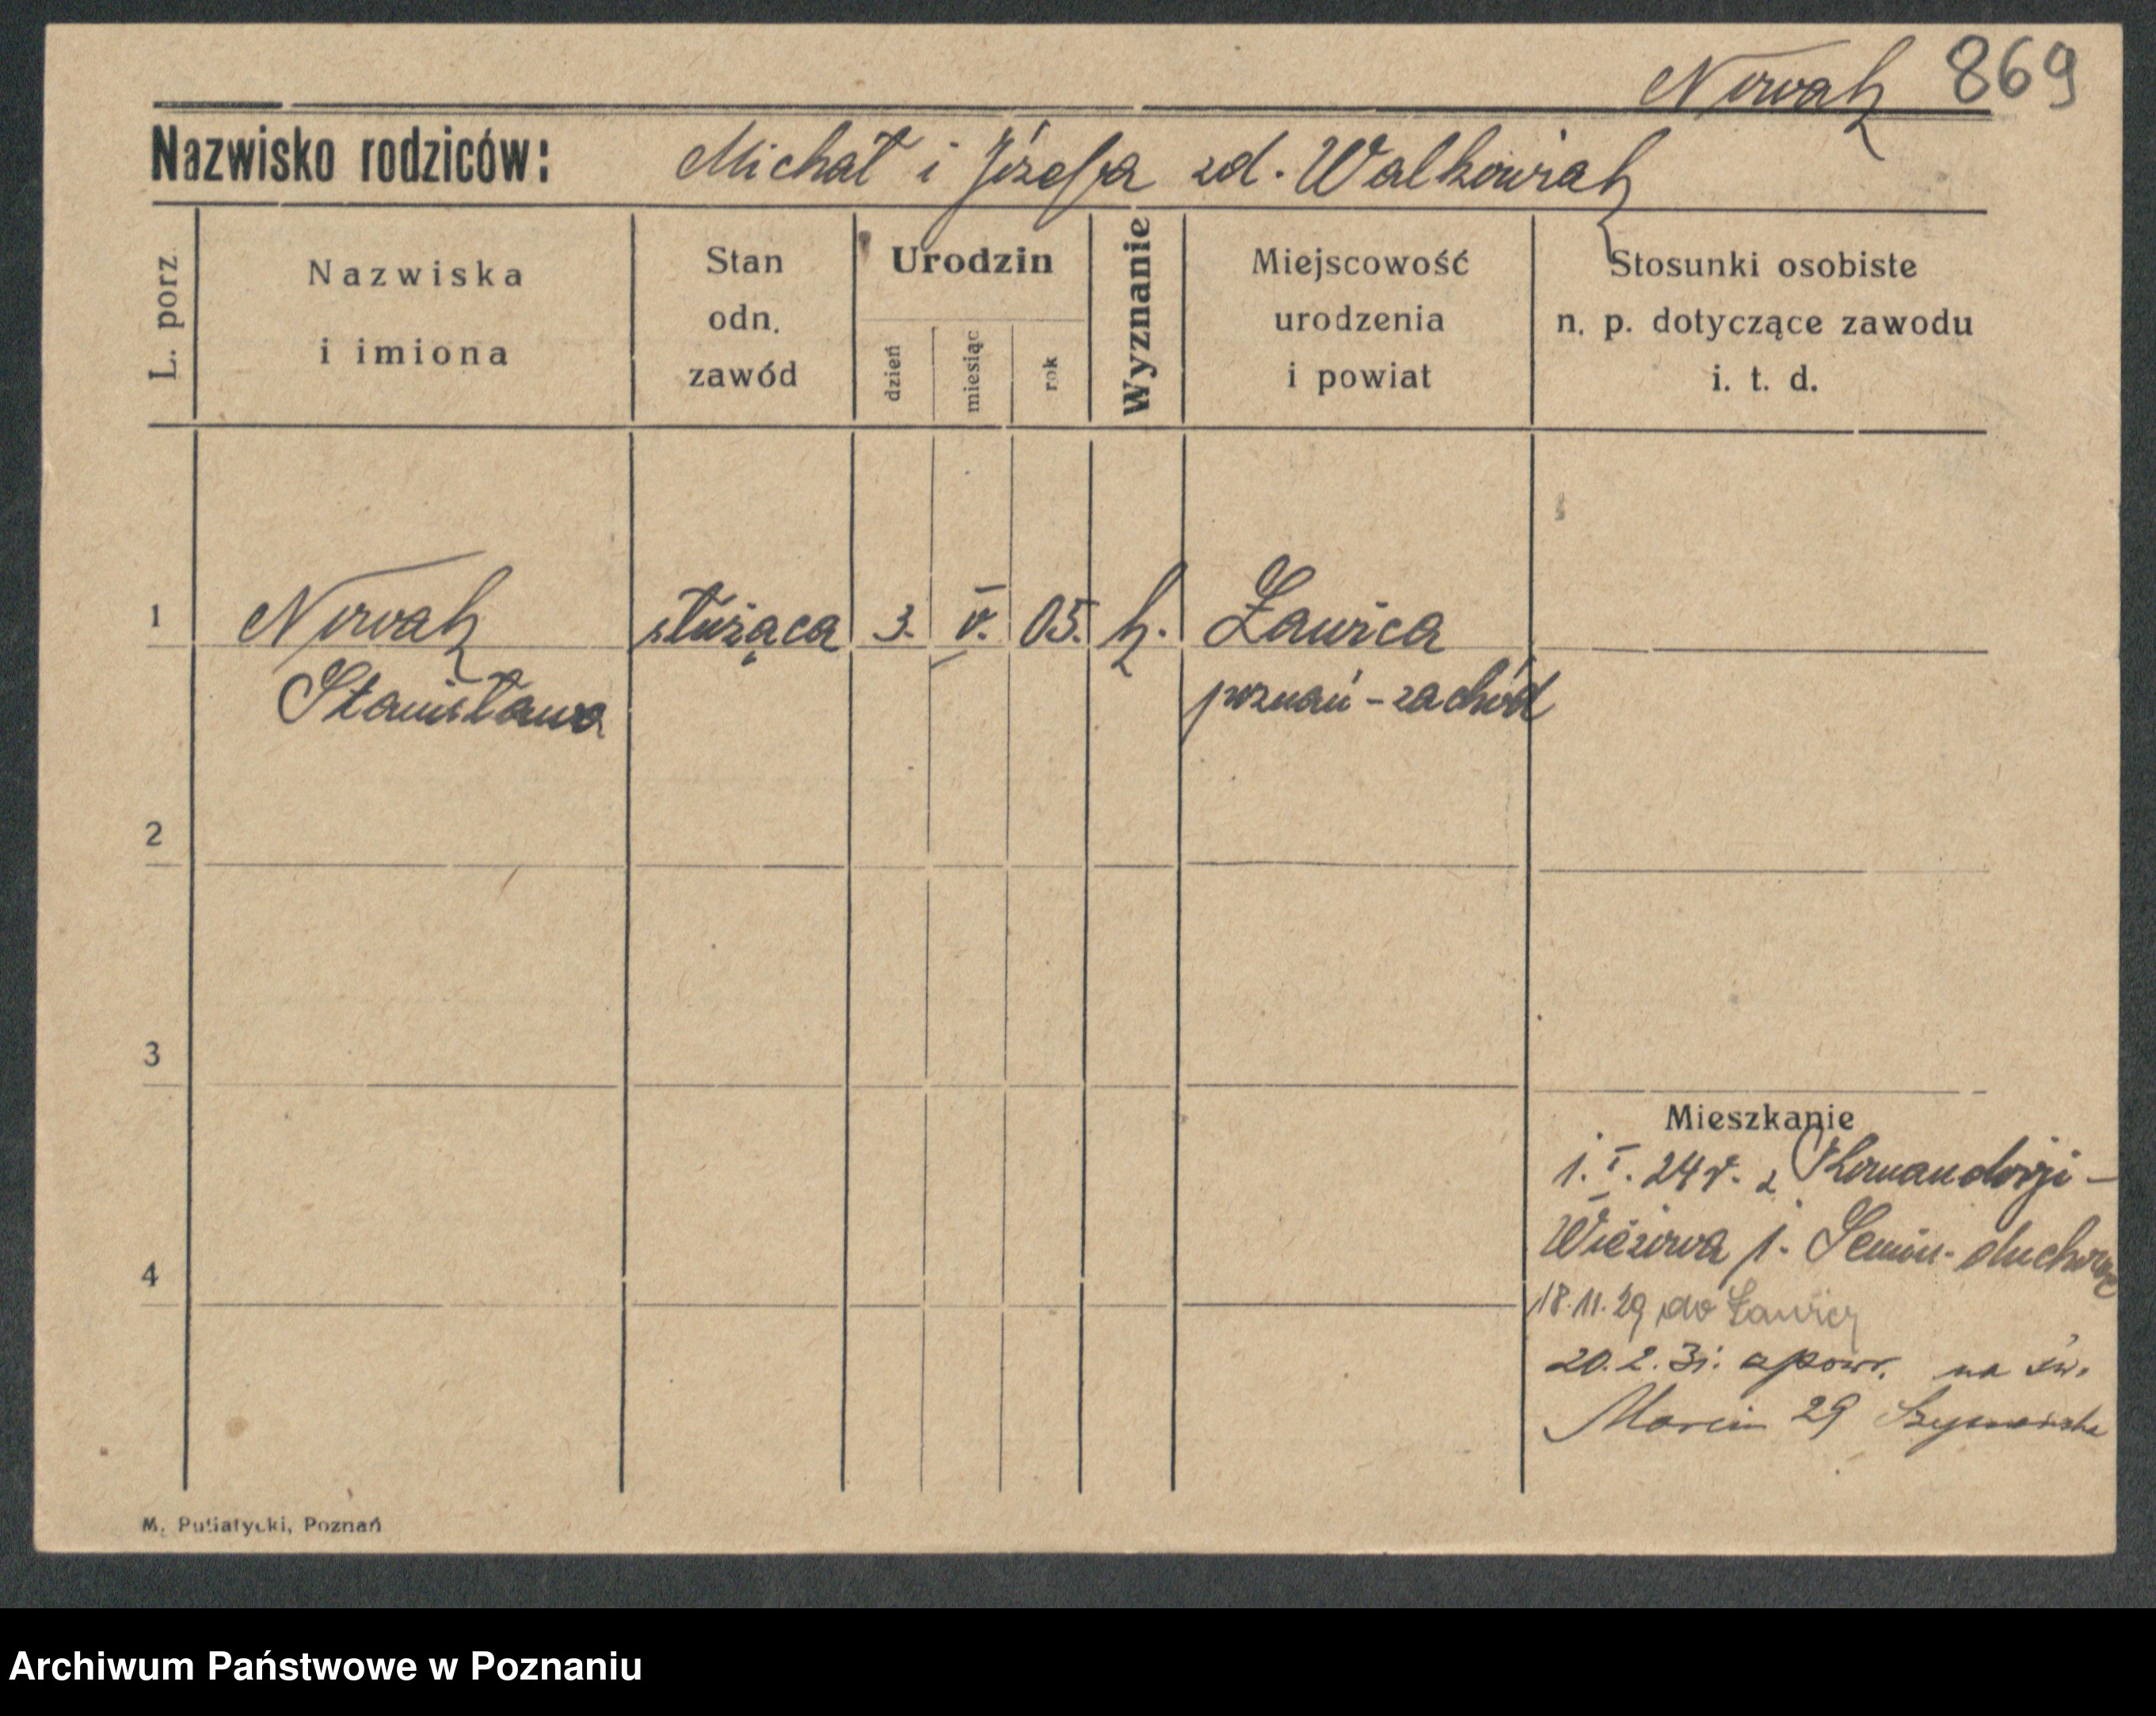 Nowak 869
Nazwisko rodziców: Michał i Józefa zd. Walkowiak
L. porz.
Nazwiska
i imiona
Stan
odn.
zawód
Urodzin
dzień
miesiąc
rok
Wyznanie
Miejscowość
urodzenia
i powiat
Stosunki osobiste
n. p. dotyczące zawodu
i. t. d.
1 Nowak służąca 3. V. 05. k. Ławica
Stanisława poznań-zachód
2
3
Mieszkanie
1.I.24r. z Komandorji -
Wieżowa p. Semin. duchowne
4
18.11.29 do Ławicy
20.2.31. z powr. na św.
Marcin 29 Szymańska
M. Putiatycki, Poznań
Archiwum Państwowe w Poznaniu